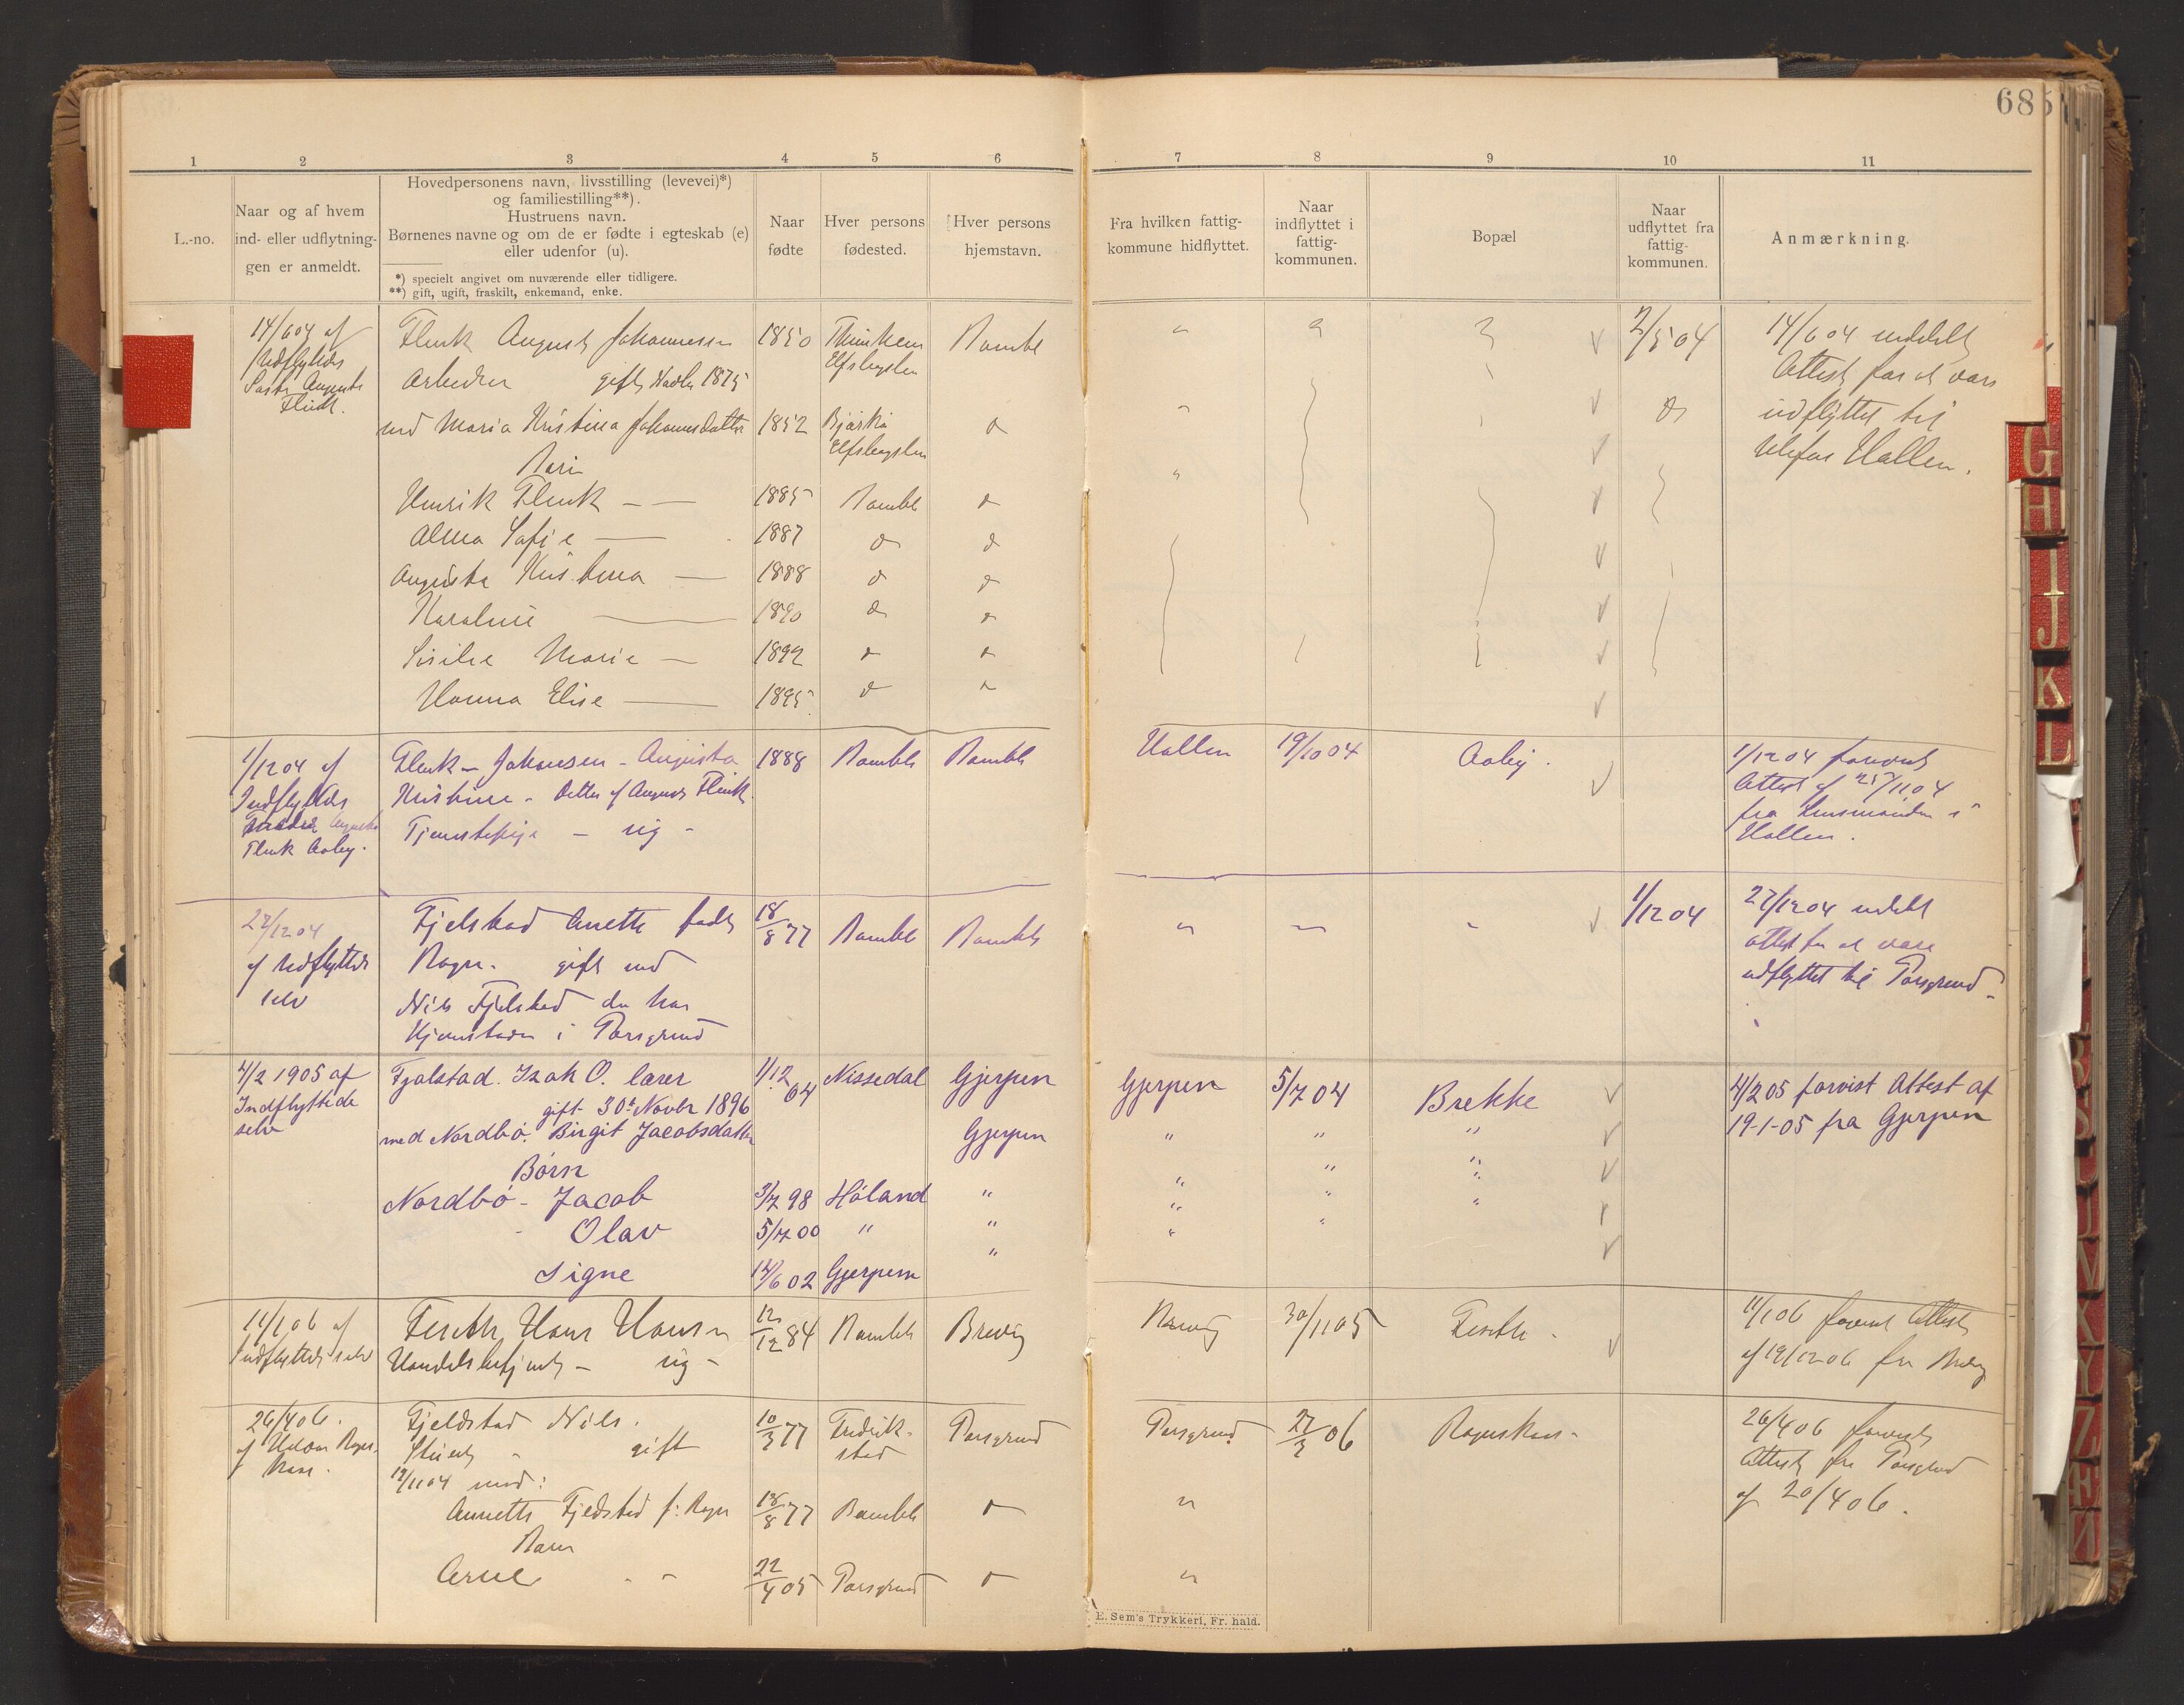 685
1 2 3 4 5 6 7 8 9 10 11
L.-no.
Naar og af hvem
ind- eller udflytnin-
gen er anmeldt.
Hovedpersonens navn, livsstilling (levevei)*)
og familiestilling**).
Hustruens navn.
Børnenes navne og om de er fødte i egteskab (e)
eller udenfor (u).
*) specielt angivet om nuværende eller tidligere.
**) gift, ugift, fraskilt, enkemand, enke.
Naar
fødte
Hver persons
fødested.
Hver persons
hjemstavn.
Fra hvilken fattig-
kommune hidflyttet.
Naar
indflyttet i
fattig-
kommunen.
Bopæl
Naar
udflyttet fra
fattig-
kommunen.
Anmærkning.
14/6 04 af Flink August Johannessen 1850 Bamble 2/5 04 14/6 04 meddelt
Udflyttedes Arbeider gift 1875 Elfsborgslen Attest for at være
August med Maria Kristina Johannesdatter 1852 udflyttet til
Flink. Børn Elfsborgslen Hollen.
Henrik Flink 1885 Bamble
Alma Sofie 1887
Augusta Kristina 1888
Karoline 1890
Marie 1892
Hanna Elise 1895
1/12 04 af Flink - Johansen - Augusta 1888 Bamble Bamble Hollen 19/10 04 Aaby. 1/12 04 forevist
Indflyttedes Kristine - Datter af August Flink Attest af 25/11 04
Tjenestepige - ug - fra Lensmanden i
Flink Aaby. Hollen.
27/12 04 Fjelstad Anette født 18/8 77 Bamble Bamble 1/12 04 27/12 04 meddelt
af Udflyttede gift med attest for at være
selv Nils Fjelstad der har udflyttet til Porsgrund
Hjemstavn i Porsgrund
4/2 1905 af Fjalstad. Izak O. lærer 1/12 64 Nissedal Gjerpen Gjerpen 5/7 04 Brekke 4/2 05 forvist Attest af
Indflyttede gift 30te Novbr 1896 19-1-05 fra Gjerpen
selv med Nordbø. Birgit Jacobsdatter Gjerpen " " "
Børn
Nordbø - Jacob 3/7 98 Høland " " " "
- Olav 5/7 00 " " " " "
Signe 14/6 02 Gjerpen "
11/1 06 af Hans Hansen 12/12 84 Bamble Brevig Brevig 30/11 05 11/1 06 forevist Attest
Indflyttede selv Handelsbetjent - ug - af 19/12 06 fra Brevig
26/4 06. Fjeldstad Nils. 10/3 77 Fredrik- Porsgrund Porsgrund 27/3 06 26/4 06 forevist
af gift stad Attest fra Porsgrund
19/11 04 med: af 20/4 06.
Annette Fjeldstad f: 18/8 77 Bamble
Børn
Arne 22/4 05 Porsgrund
E. Sem's Trykkeri, Fr. hald.
G
H
I
J
K
L